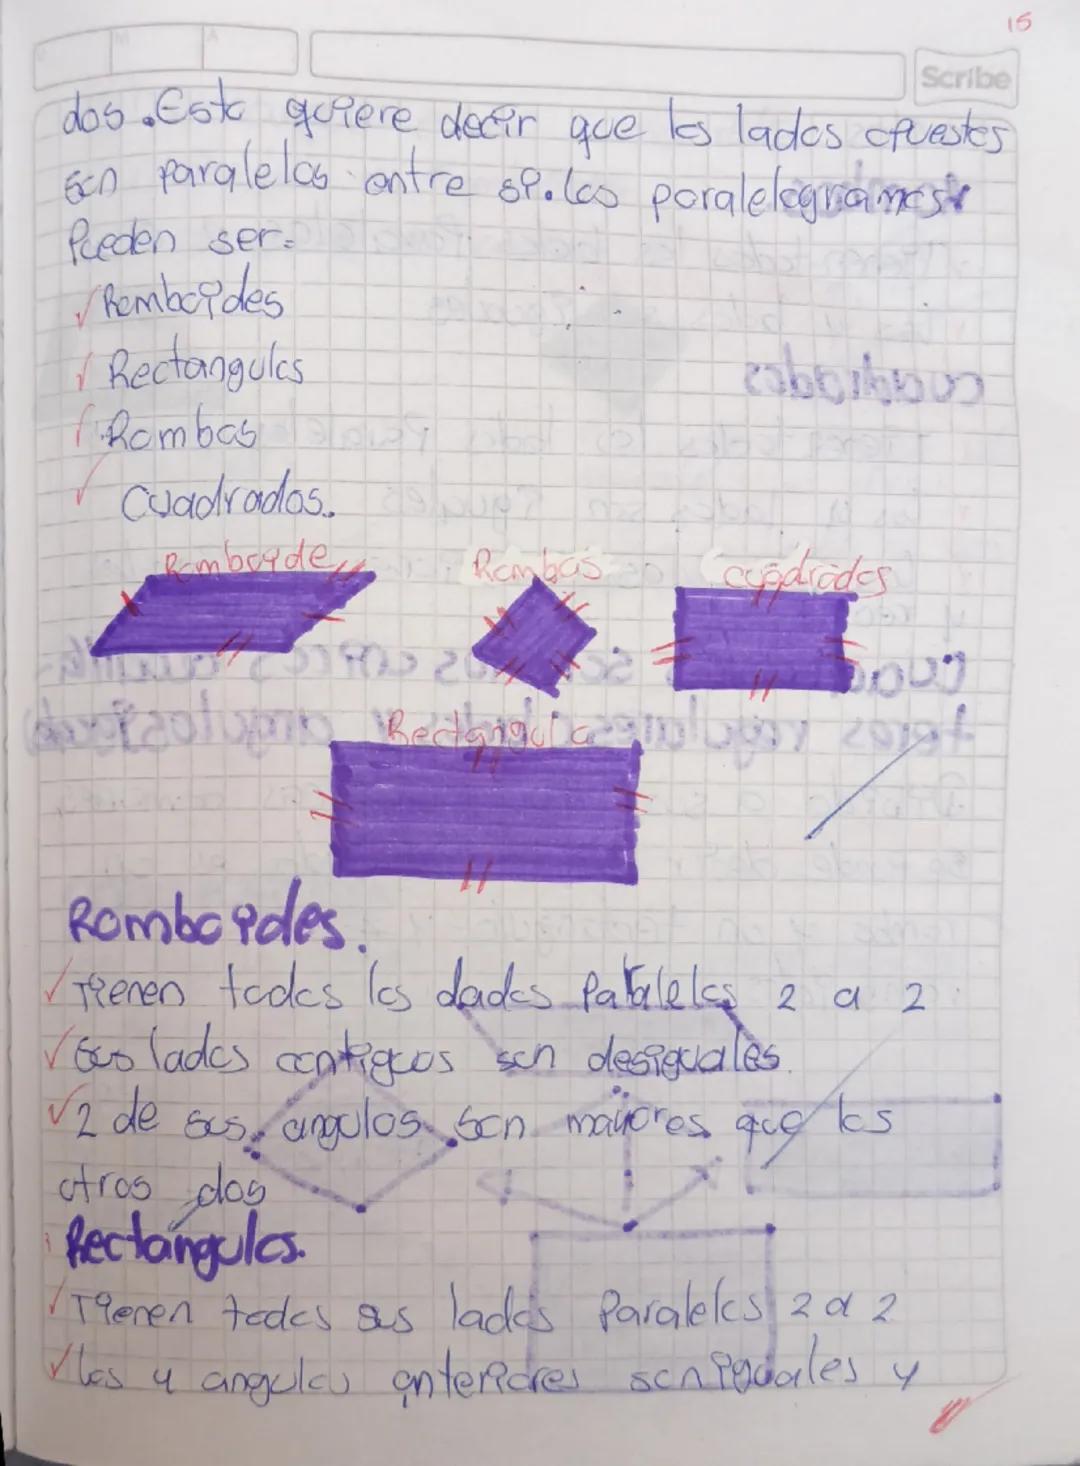 15
Scribe
dos. Esto quiere decir que los lados opuestos
son paralelos entre sí. los paralelogramos
Pueden ser:
Romboides
Rectangulos
Rombos
Cuadrados.
Romboide
Rombos
cuadrados
Rectangulo
Romboides.
Tienen todos los dados Paralelos 2 a 2
Sus lados contiguos son desiguales.
2 de sus angulos son mayores que los
otros dos
Rectángulos.
Tienen todos sus lados Paralelos 2 a 2
los 4 angulos anteriores son iguales y